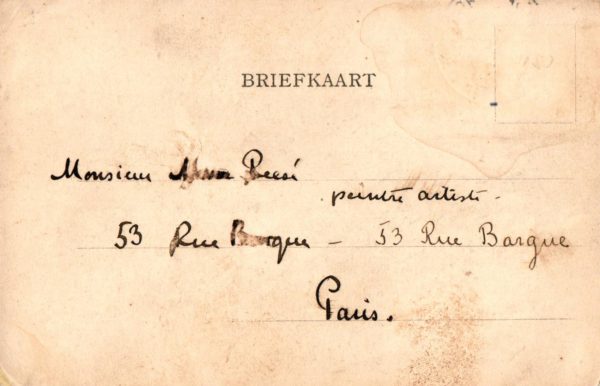 BRIEFKAART
Monsieur
peintre artiste -
53 Rue Bargue - 53 Rue Bargue
Paris.